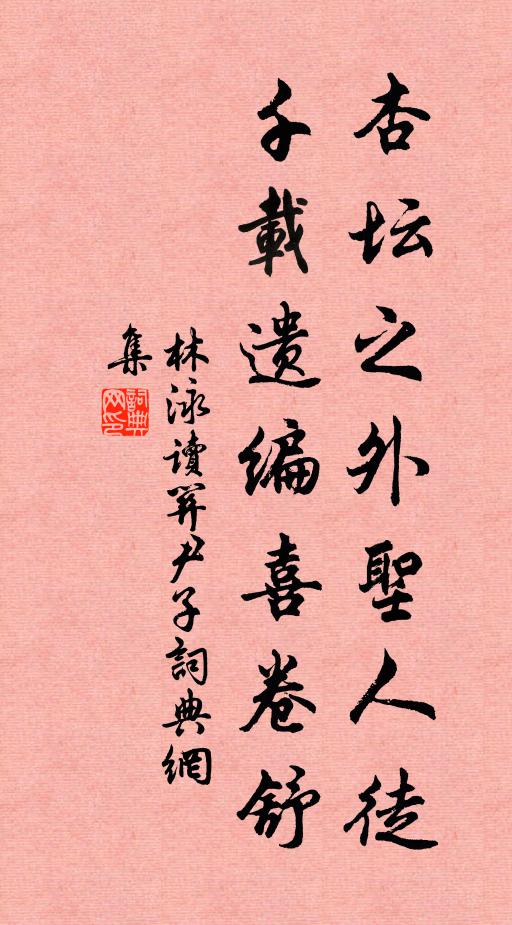 杏坛之外聖人徒
千載遗编喜卷舒
林泳讀關尹子詞典網
集
詞典網印